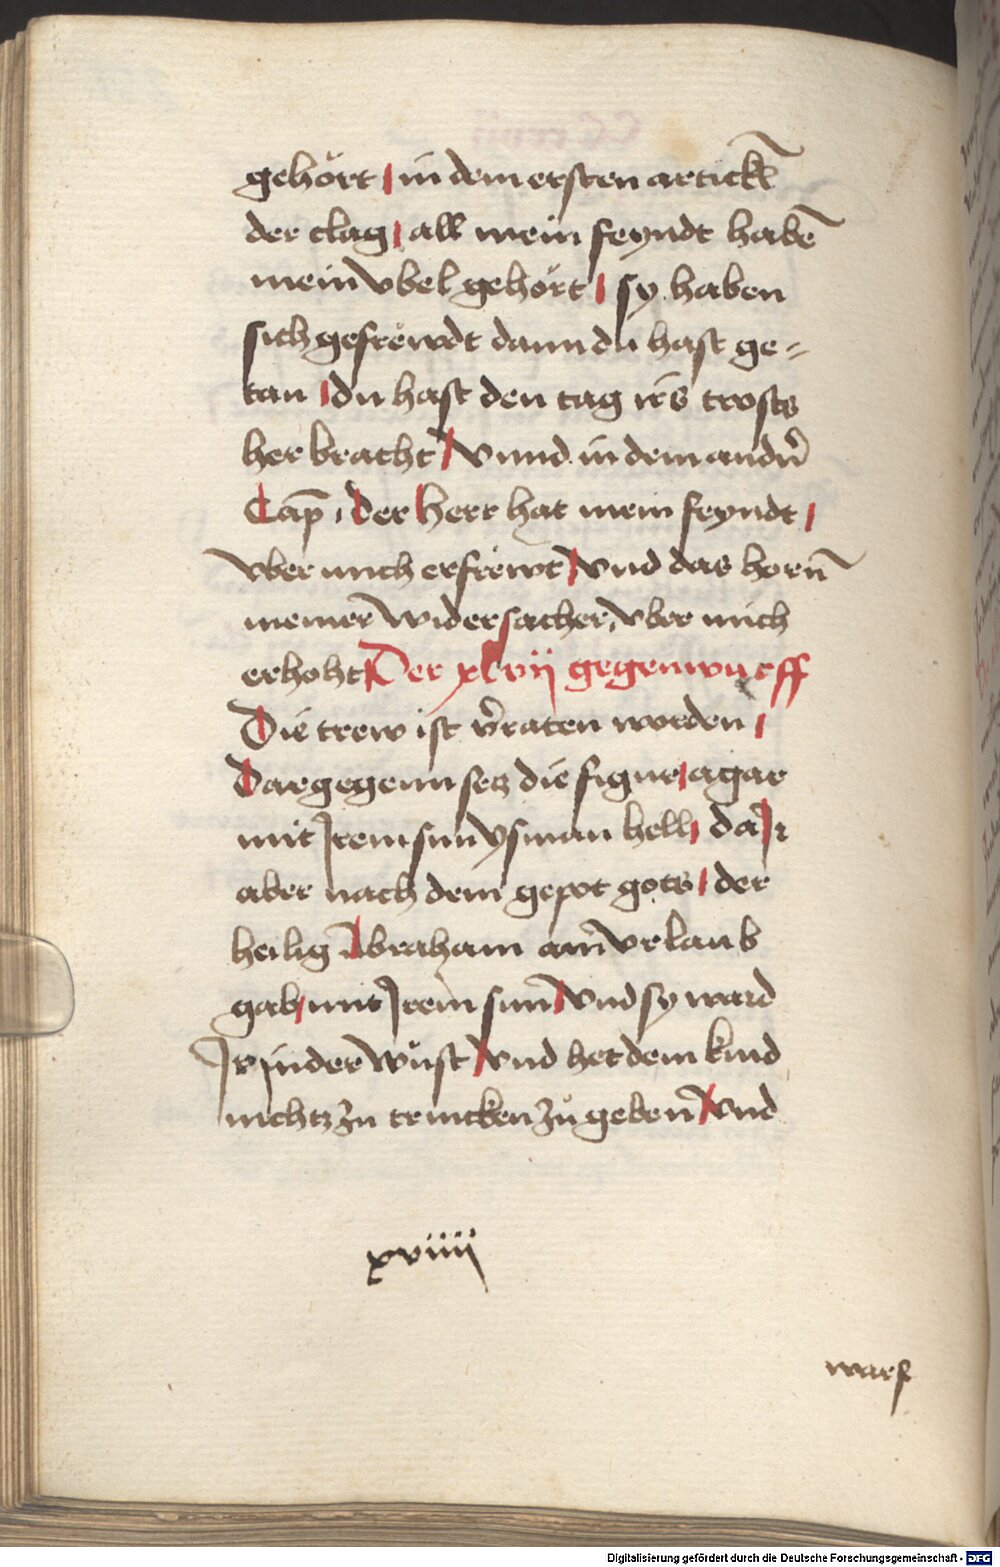 gehört | in dem ersten artickl̄
der clag | all mein feyndt habē
mein vbel gehört | sy haben
sich gefrewdt dann du hast ge=
tan | du hast den tag irs̄ trosts
her bracht | vnnd in dem andn̄
Cap̄ . der herr hat mein feyndt |
vber mich erfrewt | vnd das horn̄
meiner widersacher, vber mich
erhoht Der xlvij gegenwurff
Die trew ist v̄raten worden |
Dargegenn setz die figur | agar
mit Irem sun ysmahell | da Ir
aber nach dem gepot gots | der
heilig Abraham ain̄ vrlaub
gab | mit Irem sun | vnd sy ward
Ir in der wüst | vnd het dem kind
nichtz zu trincken zů geben | vnd
xviiij
warf
Digitalisierung gefördert durch die Deutsche Forschungsgemeinschaft - DFG